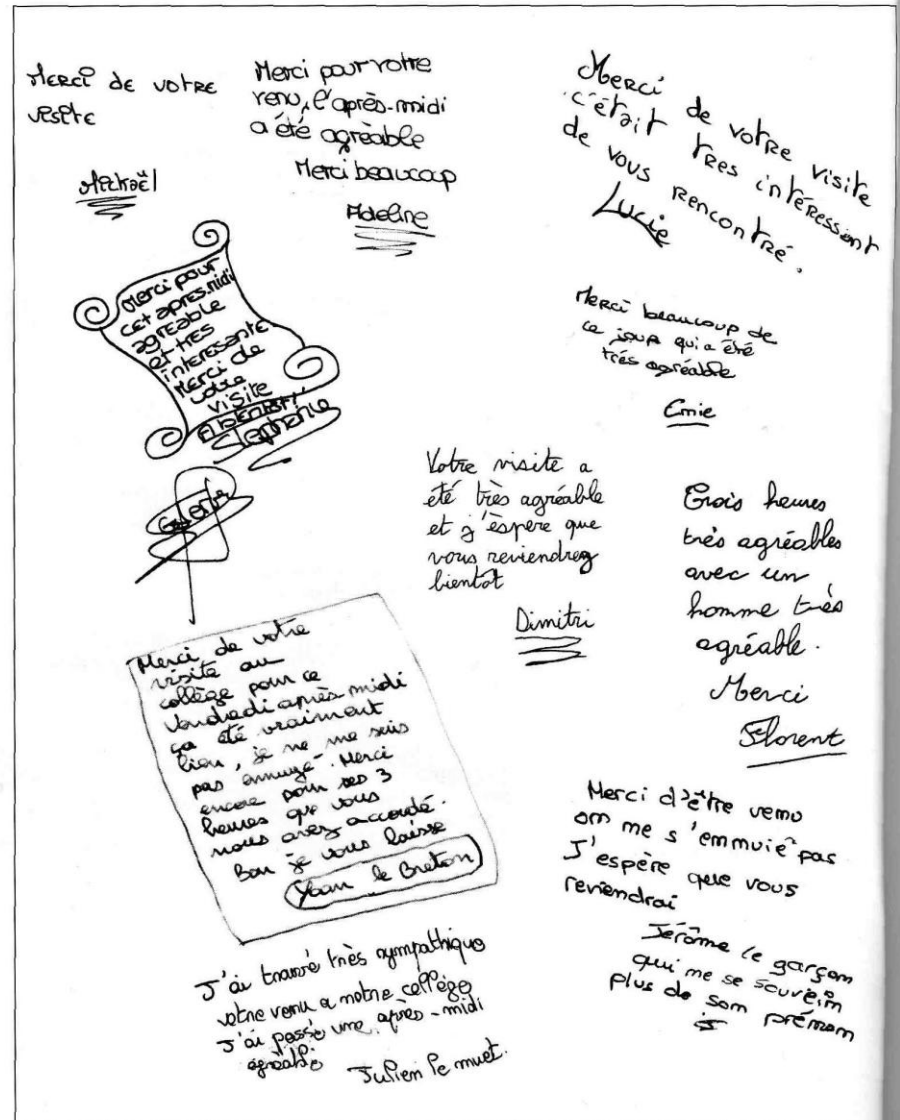 Merci de votre
visite
Mickaël
Merci pour votre
venu, l'après-midi
a été agréable
Merci beaucoup
Adeline
Merci de votre visite
c'était tres intéressant
de vous rencontré.
Lucie
Merci pour
cet apres.midi
agréable
et tres
interesante.
Merci de
votre
visite
Stephanie
Merci beaucoup de
ce jour qui a été
trés agréable
Emie
Votre visite a
été très agréable
et j'èspere que
vous reviendrez
bientôt
Dimitri
Trois heures
très agréables
avec un
homme très
agréable.
Merci
Florent
Merci de votre
visite au
collège pour ce
Vendredi après midi
ça été vraiment
bien, je ne me suis
pas ennuyé. Merci
encore pour ses 3
heures que vous
nous avez accordé.
Bon je vous laisse
Yoan le Breton
Merci d'être venu
on me s'emmuie pas
J'espère que vous
reviendrai
Jérôme le garçon
qui me se souvein
plus de som prémom
J'ai trouvé très sympathique
votre venu a notre collège
J'ai passé une après-midi
agréable
Julien le muet.